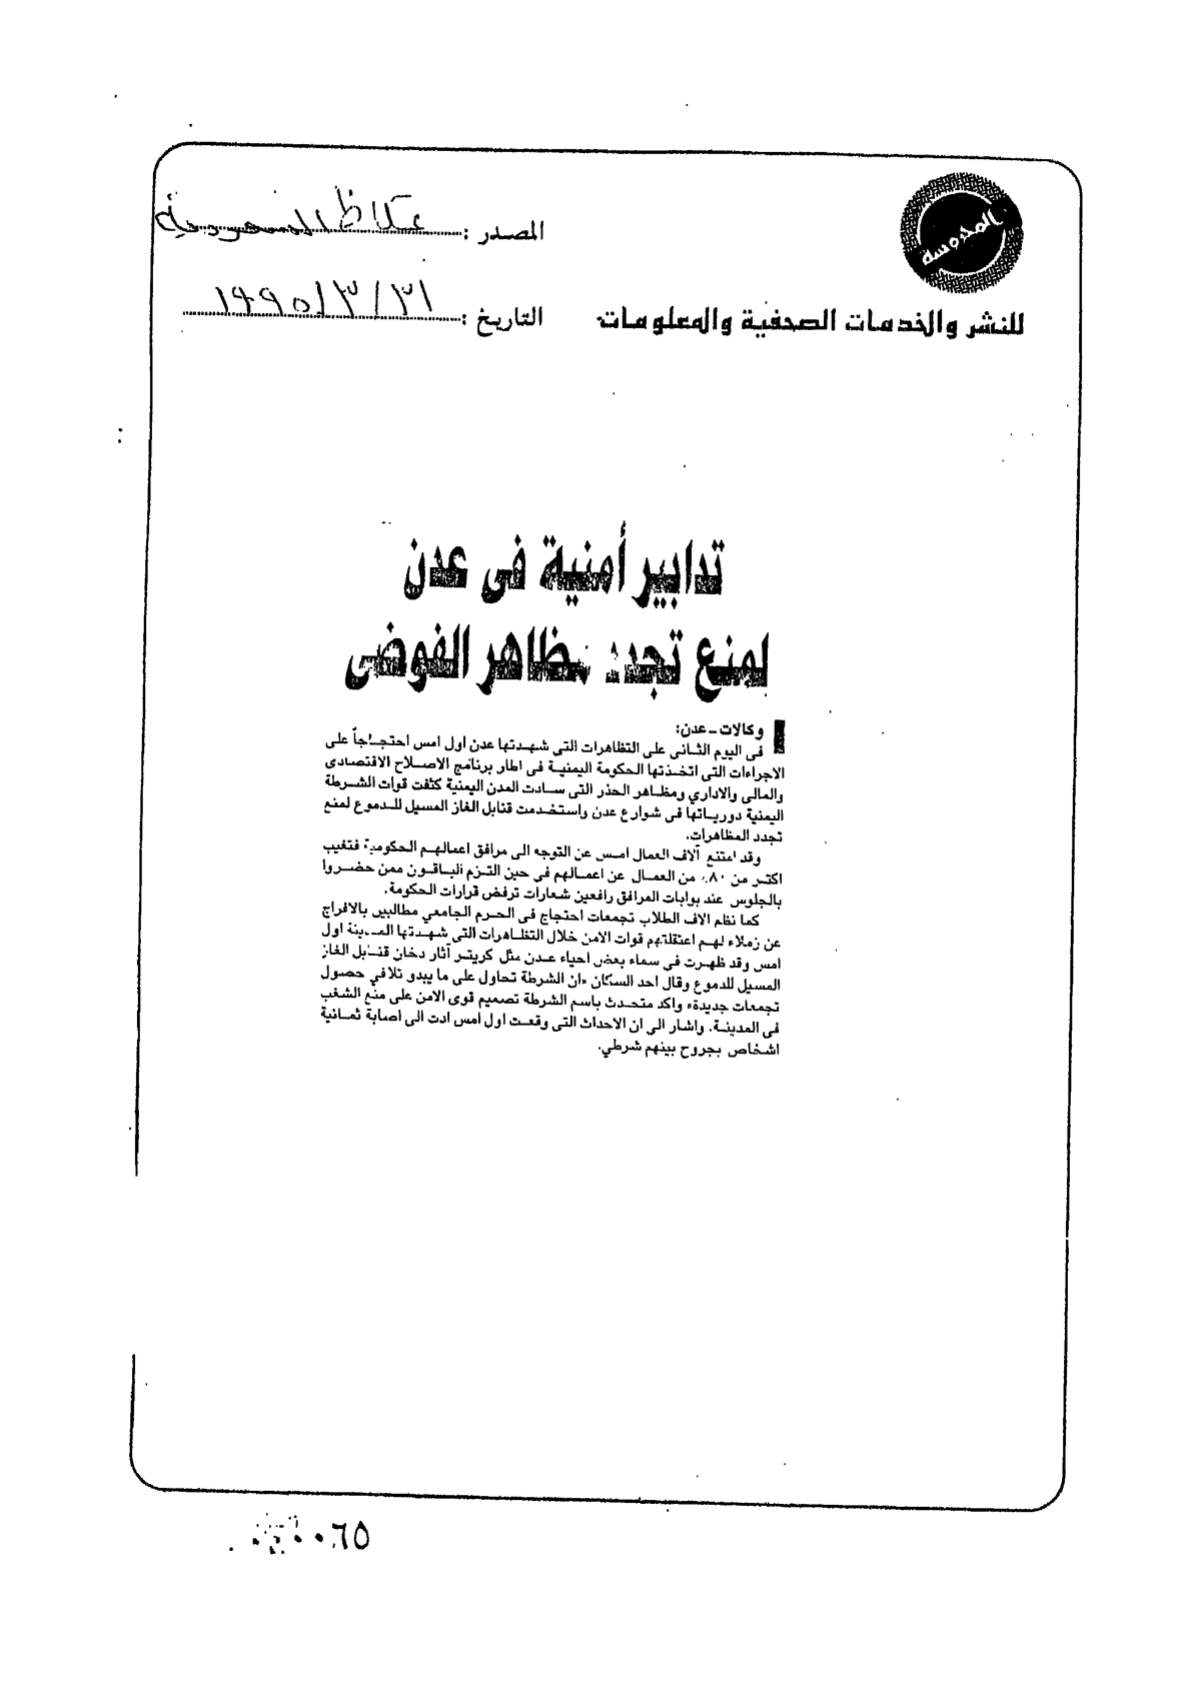 المحروسة
المصدر : عكاظ السعودية
للنشر والخدمات الصحفية والمعلومات
التاريخ : ٣١ / ٣ / ١٩٩٥
تدابير أمنية فى عدن
لمنع تجدد مظاهر الفوضى
وكالات ـ عدن:
فى اليوم الثانى على التظاهرات التى شهدتها عدن اول امس احتجاجاً على
الاجراءات التى اتخذتها الحكومة اليمنية فى اطار برنامج الاصلاح الاقتصادى
والمالى والاداري ومظاهر الحذر التى سادت المدن اليمنية كثفت قوات الشرطة
اليمنية دورياتها فى شوارع عدن واستخدمت قنابل الغاز المسيل للدموع لمنع
تجدد المظاهرات.
وقد امتنع آلاف العمال امس عن التوجه الى مرافق اعمالهم الحكومية فتغيب
اكثر من ٨٠٪ من العمال عن اعمالهم فى حين التزم الباقون ممن حضروا
بالجلوس عند بوابات المرافق رافعين شعارات ترفض قرارات الحكومة.
كما نظم الاف الطلاب تجمعات احتجاج فى الحرم الجامعي مطالبين بالافراج
عن زملاء لهم اعتقلتهم قوات الامن خلال التظاهرات التى شهدتها المدينة اول
امس وقد ظهرت فى سماء بعض احياء عدن مثل كريتر آثار دخان قنابل الغاز
المسيل للدموع وقال احد السكان «ان الشرطة تحاول على ما يبدو تلافي حصول
تجمعات جديدة» واكد متحدث باسم الشرطة تصميم قوى الامن على منع الشغب
فى المدينة. واشار الى ان الاحداث التى وقعت اول امس ادت الى اصابة ثمانية
اشخاص بجروح بينهم شرطي.
٠٠٦٥